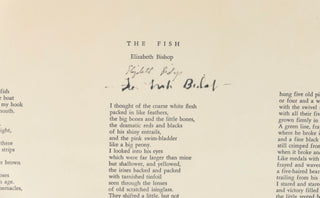 THE FISH
Elizabeth Bishop
Elizabeth Bishop
fish
boat
my hook
mouth.
ight,
er brown
on age.
I thought of the coarse white flesh
packed in like feathers,
the big bones and the little bones,
the dramatic reds and blacks
of his shiny entrails,
and the pink swim-bladder
like a big peony.
I looked into his eyes
which were far larger than mine
but shallower, and yellowed,
the irises backed and packed
with tarnished tinfoil
seen through the lenses
of old scratched isinglass.
They shifted a little, but not
hung five old pi
or four and a w
with the swivel
with all their fiv
grown firmly in
A green line, fra
where he broke
and a fine black
still crimped from
when it broke and
Like medals with
frayed and waveri
a five-haired beard
trailing from his
I stared and stared
and victory filled